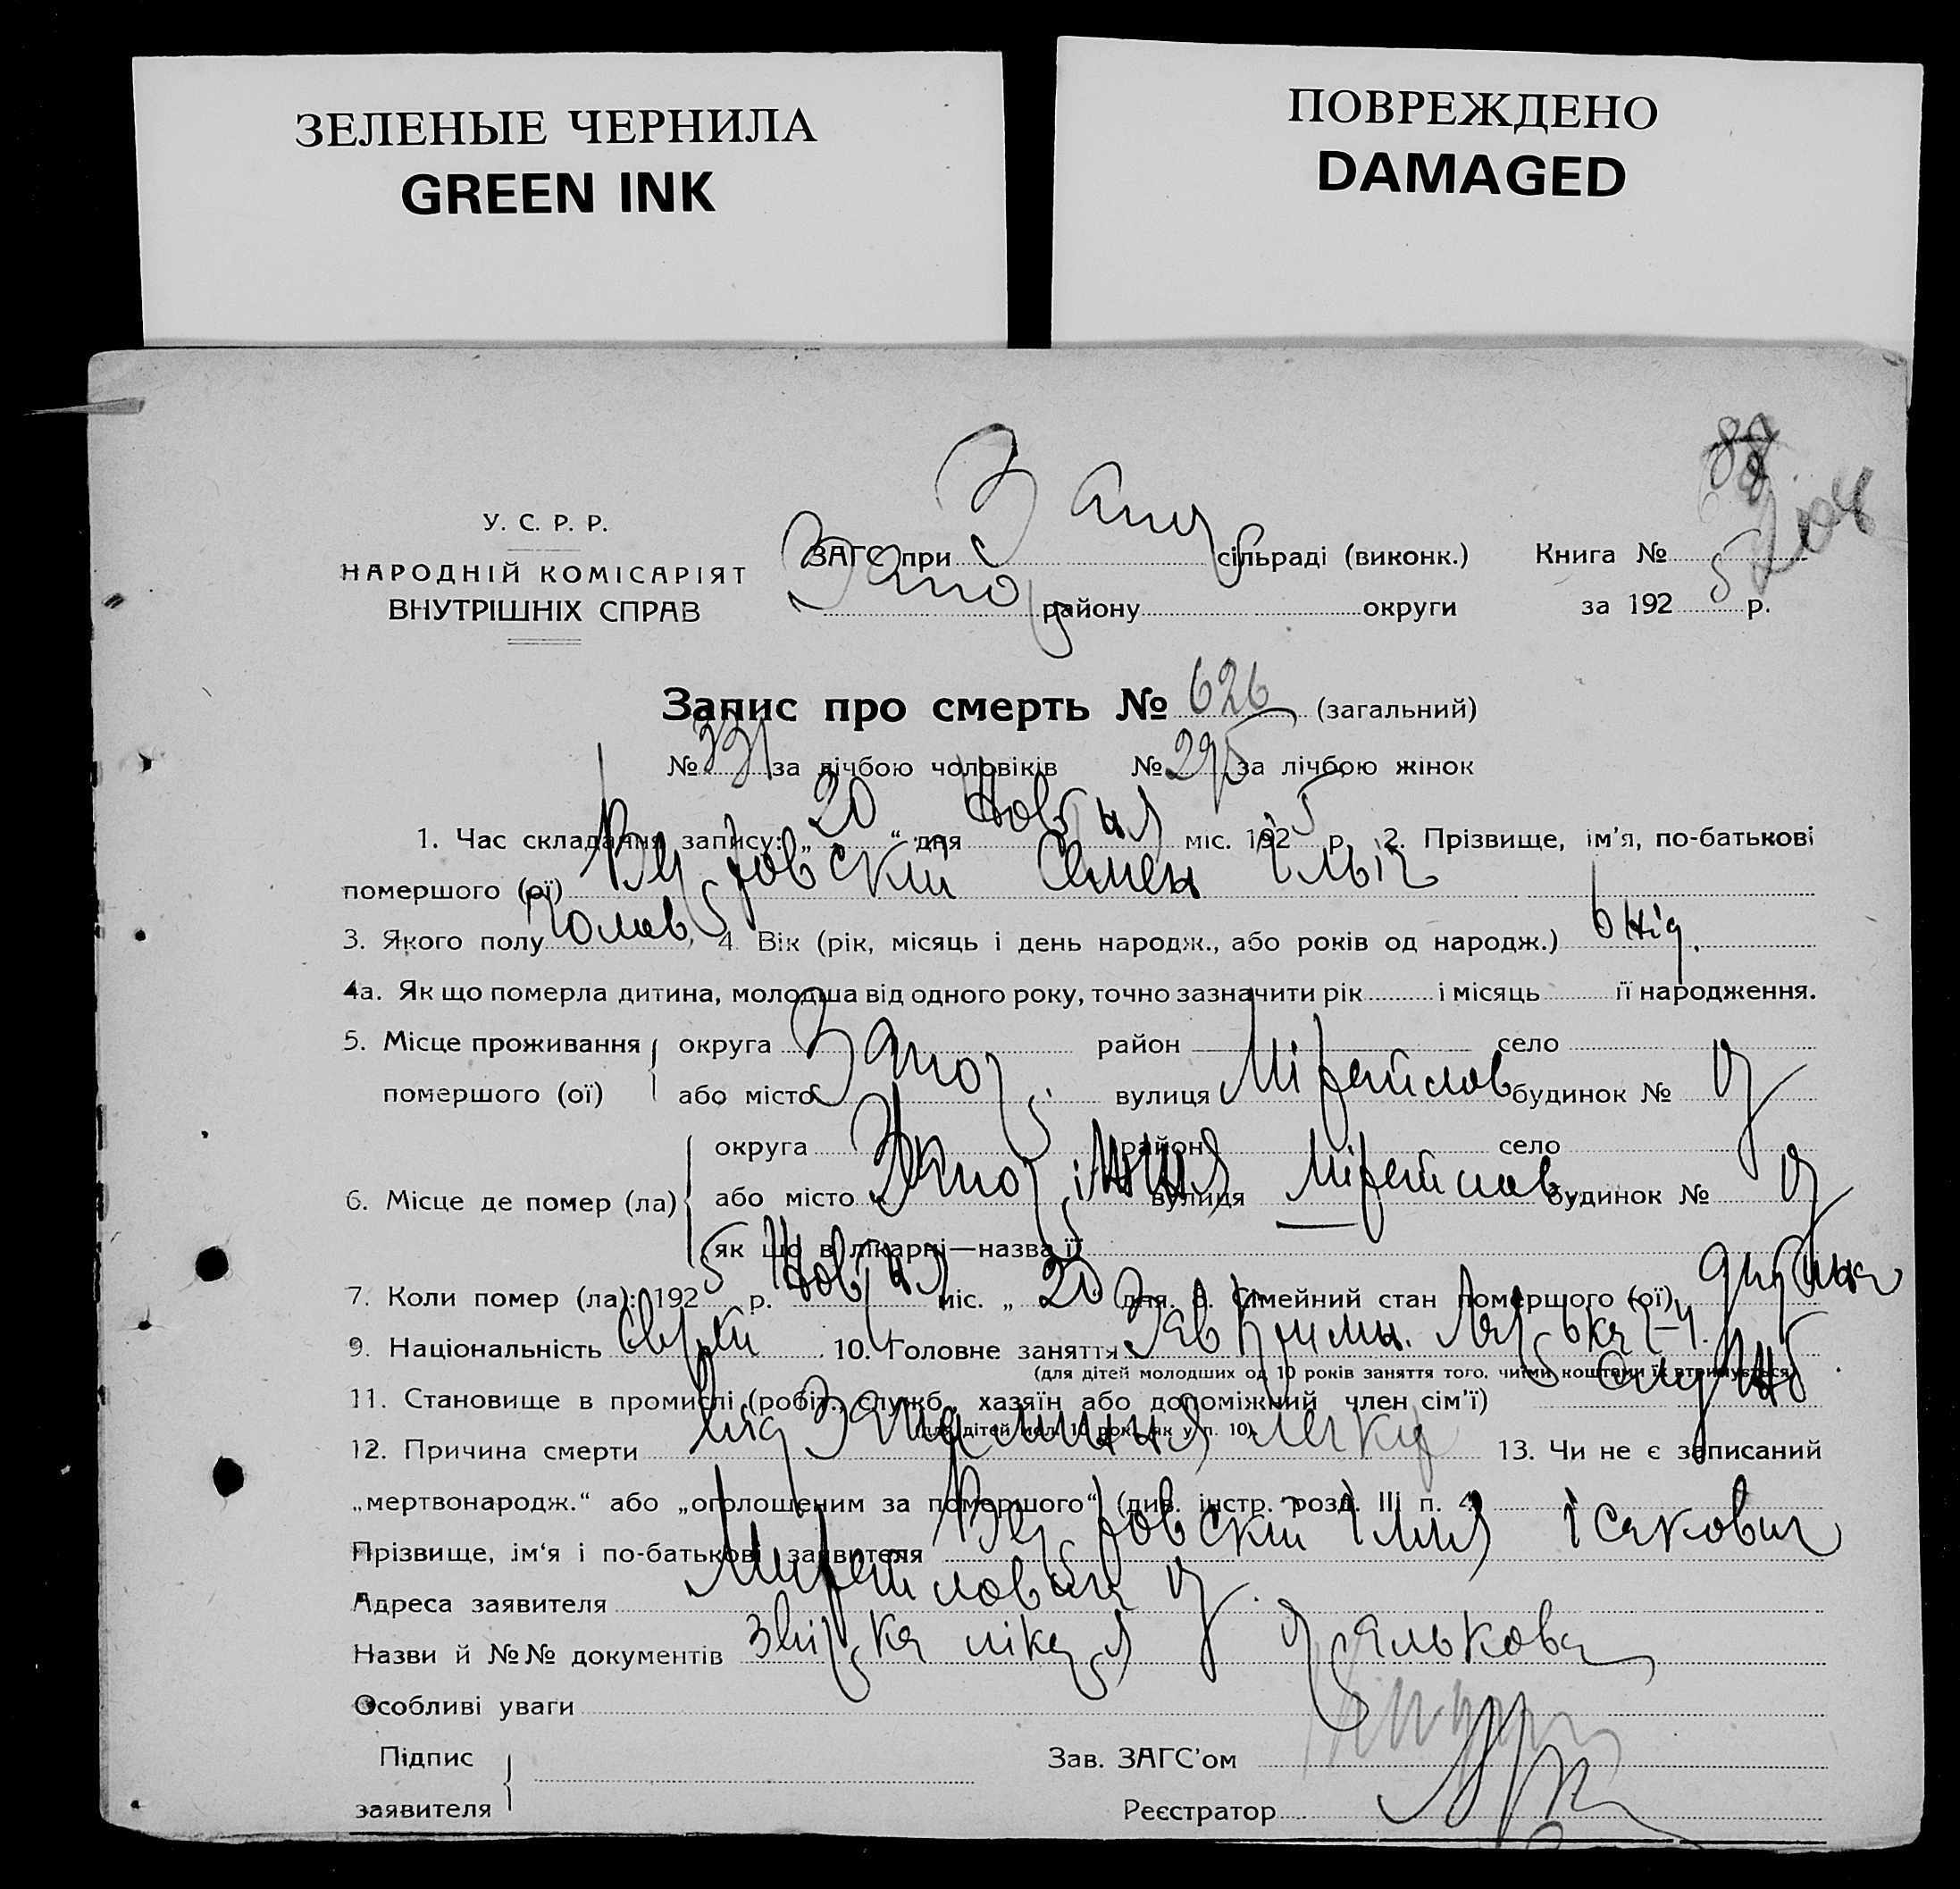 ЗЕЛЕНЫЕ ЧЕРНИЛА
GREEN INK
ПОВРЕЖДЕНО
DAMAGED
88
208
У. С. Р. Р.
НАРОДНІЙ КОМІСАРІЯТ
ВНУТРІШНІХ СПРАВ
ЗАГС при Запор сільраді (виконк.) Книга №
Запор району округи за 192 5 р.
Запис про смерть № 626 (загальний)
№ 331 за лічбою чоловіків № 295 за лічбою жінок
1. Час складання запису: „ 20 “ дня Новбря міс. 192 5 р. 2. Прізвище, ім’я, по-батькові
помершого (ої) Семен Ільіч
3. Якого полу Чолов 4. Вік (рік, місяць і день народж., або років од народж.) 6 нід.
4а. Як що померла дитина, молодша від одного року, точно зазначити рік і місяць її народження.
5. Місце проживання помершого (ої) округа Запор район село
або місто вулиця будинок № 17
6. Місце де помер (ла) округа Запор район село
або місто вулиця будинок № 17
як що в лікарні—назва її
7. Коли помер (ла): 192 5 р. Новбря міс. „ 20 дня. 8. Сімейний стан помершого (ої)
9. Національність Єврей 10. Головне заняття Зав
(для дітей молодших од 10 років заняття того, чиїми коштами їх втримується)
11. Становище в промислі (робіт., служб., хазяїн або допоміжний член сім’ї) служб
(для дітей мол. 10 рок. як у п. 10).
12. Причина смерти Від Запалиния легких 13. Чи не є записаний
„мертвонародж.“ або „оголошеним за помершого“ (див. інстр. розд. III п. 4)
Прізвище, ім‘я і по-батькові заявителя Ілля Ісакович
Адреса заявителя 17
Назви й №№ документів звірка лікаря
Особливі уваги
Підпис
заявителя
Зав. ЗАГС’ом
Реєстратор